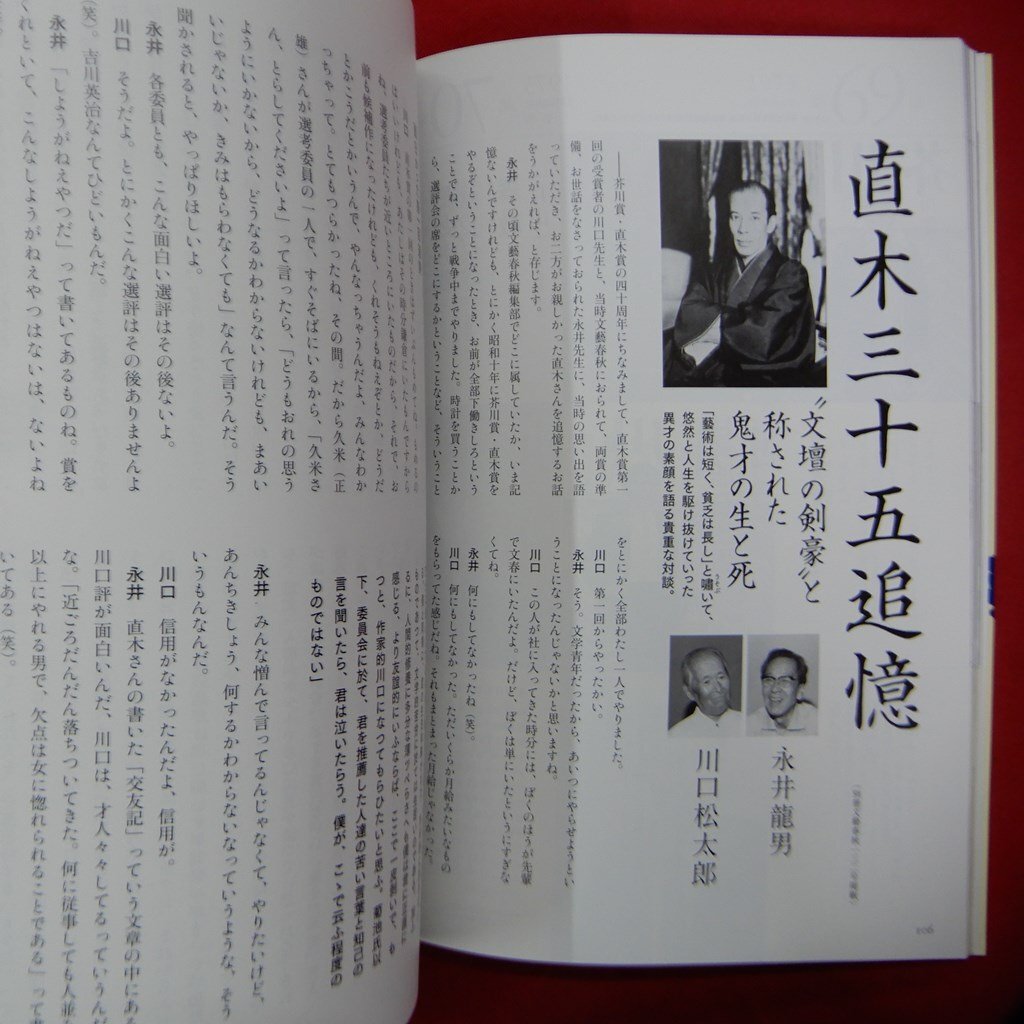 直木三十五追憶
〝文壇の剣豪〟と
称された
鬼才の生と死
「藝術は短く、貧乏は長し」と嘯いて、
うそぶ
悠然と人生を駆け抜けていった
異才の素顔を語る貴重な対談。
永井龍男
川口松太郎
――芥川賞、直木賞の四十周年にちなみまして、直木賞第一
回の受賞者の川口先生と、当時文藝春秋におられて、両賞の準
備、お世話をなさっておられた永井先生に、当時の思い出を語
っていただき、お二方がお親しかった直木さんを追憶するお話
をうかがえれば、と存じます。
永井　その頃文藝春秋編集部でどこに属していたか、いま記
憶ないんですけれども、とにかく昭和十年に芥川賞・直木賞を
やるぞということになったとき、お前が全部下働きしろという
ことでね、ずっと戦争中までやりました。時計を買うことか
ら、選評会の席をどこにするかということなど、そういうこと
をとにかく全部わたし一人でやりました。
川口　第一回からやったかい。
永井　そう。文学青年だったから、あいつにやらせようとい
うことになったんじゃないかと思いますね。
川口　この人が社に入ってきた時分には、ぼくのほうが先輩
で文春にいたんだよ。だけど、ぼくは単にいたというにすぎな
くてね。
永井　何にもしてなかったね（笑）。
川口　何にもしてなかった。ただいくらか月給みたいなもの
をもらってた感じだね。それもまとまった月給じゃなかった。
106
ね、選考委員たちが近いところにいたものだから、それで、お
前も候補作になったけれども、くれそうもねえぞとか、どうだ
とかこうだとかいうんで、やんなっちゃうんだよ、みんなわか
っちゃって。とてもつらかったね、その間。だから久米（正
雄）さんが選考委員の一人で、すぐそばにいるから、「久米さ
ん、とらしてくださいよ」って言ったら、「どうもおれの思う
ようにいかないから、どうなるかわからないけれども、まあい
いじゃないか、きみはもらわなくても」なんて言うんだ。そう
聞かされると、やっぱりほしいよ。
永井　各委員とも、こんな面白い選評はその後ないよ。
川口　そうだよ。とにかくこんな選評はその後ありませんよ
（笑）。吉川英治なんてひどいもんだ。
永井　「しょうがねえやつだ」って書いてあるものね。賞を
くれといて、こんなしようがねえやつはないは、ないよね
感じる、より友誼的にいふならば、ここで一度剥いで、も
つと、作家的川口になつてもらひたいと思ふ。菊池氏以
下、委員会に於て、君を推薦した人達の苦い言葉と知己の
言を聞いたら、君は泣いたらう。僕が、こゝで云ふ程度の
ものではない」
永井　みんな憎んで言ってるんじゃなくて、やりたいけど、
あんちきしょう、何するかわからないなっていうような、そう
いうもんなんだ。
川口　信用がなかったんだよ、信用が。
永井　直木さんの書いた「交友記」っていう文章の中にある
川口評が面白いんだ、川口は、才人々々してるっていうんだ
な。「近ごろだんだん落ちついてきた。何に従事しても人並
以上にやれる男で、欠点は女に惚れられることである」って書
いてある（笑）。